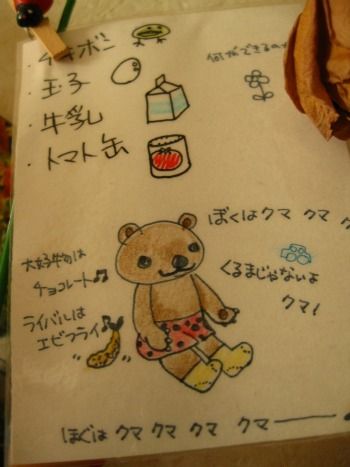 ・玉子
・牛乳
・トマト缶
何ができるの
ぼくはクマ クマ ク
くるまじゃないよ
クマ!
大好物は
チョコレート♫
ライバルは
エビフライ♪
ぼくは クマ クマ クマ クマ――